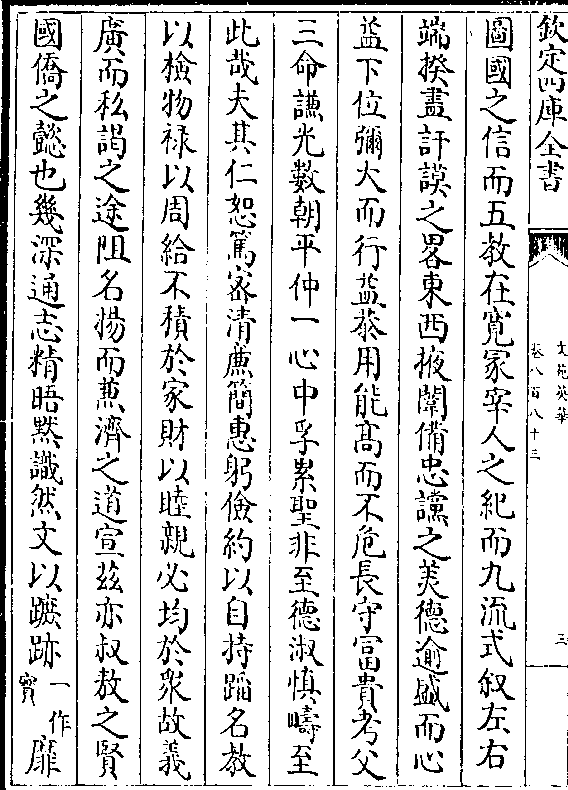 欽定四庫全書
文苑英華
卷八百八十三
三
圖國之信而五教在寛冢宰人之紀而九流式叙左右
端揆盡訏謨之畧東西掖闈備忠讜之美德逾盛而心
益下位彌大而行益恭用能髙而不危長守富貴考父
三命謙光數朝平仲一心中孚累聖非至德淑慎疇至
此哉夫其仁恕篤宻清亷簡惠躬儉約以自持蹈名教
以檢物禄以周給不積於家財以睦親必均於衆故義
廣而私謁之途阻名揚而兼濟之道宣兹亦叔敖之賢
國僑之懿也幾深通志精晤黙識然文以蹠跡一作實靡